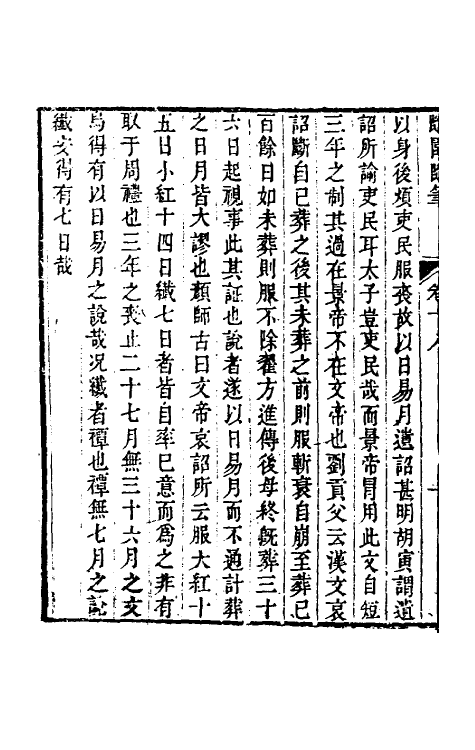 隨園隨筆 卷十八
以身後煩吏民服喪故以日易月遺詔甚明胡寅謂遺
詔所諭吏民耳太子豈吏民哉而景帝冒用此文自短
三年之制其過在景帝不在文帝也劉貢父云漢文哀
詔斷自已葬之後其未葬之前則服斬衰自崩至葬已
百餘日如未葬則服不除翟方進傳後母終旣葬三十
六日起視事此其証也說者遂以日易月而不通計葬
之日月皆大謬也顏師古曰文帝哀詔所云服大紅十
五日小紅十四日纎七日者皆自率已意而爲之非有
取于周禮也三年之喪止二十七月無三十六月之文
焉得有以日易月之說哉况纎者禫也禫無七月之說
纎安得有七日哉